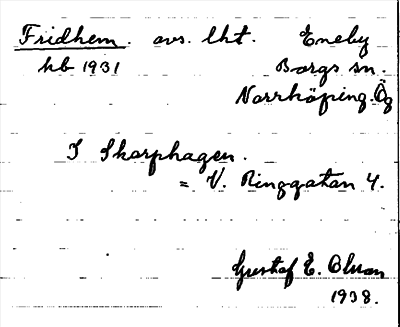 Fridhem. avs. lht. Eneby
kb 1931 Borgs sn.
Norrköping. Ög
I Skarphagen.
= V. Ringgatan 4.
Gustaf E. Olsson
1938.